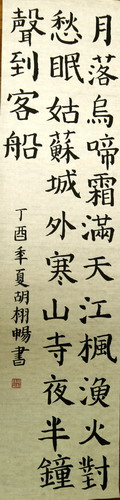 月落烏啼霜滿天江楓漁火對
愁眠姑蘇城外寒山寺夜半鐘
聲到客船
丁酉年夏胡栩暢書